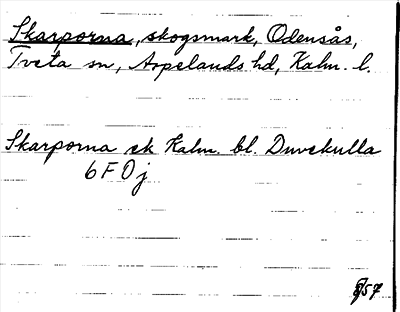 Skarporna, skogsmark, Odensås,
Tveta sn, Aspelands hd, Kalm. l.
Skarporna ek Kalm. bl. Duvekulla
6F0j
57